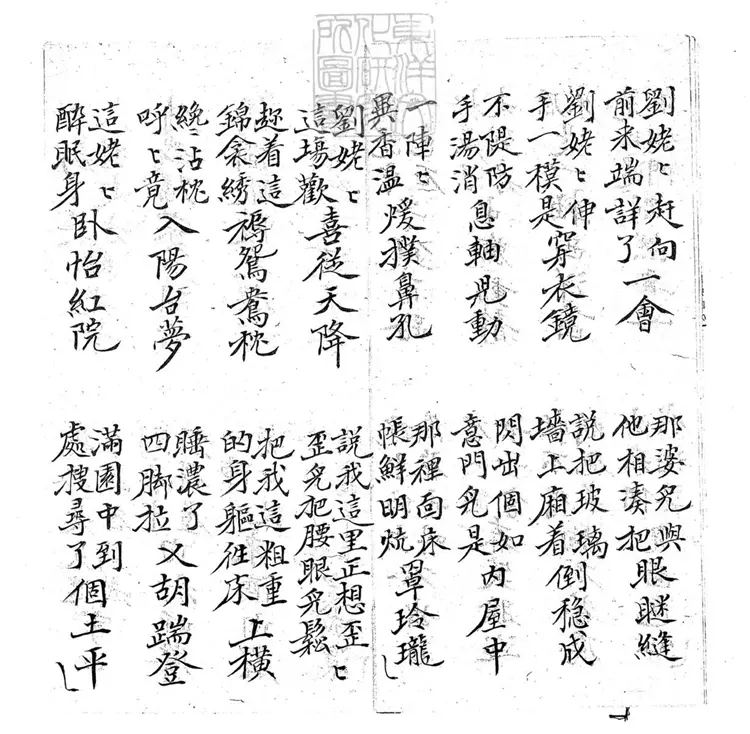 劉姥〻赶向前来端詳了一會
那婆兒與他相湊把眼瞇縫
劉姥〻伸手一模是穿衣鏡
說把玻璃墙上廂着倒稳成
不隄防手湯消息軸兒動
閃出個如意門兒是内屋中
一陣〻異香温煖撲鼻孔
那裡面床帳鮮明炕罩玲瓏
劉姥〻這塲歡喜從天降
說我這里正想歪〻歪兒把腰眼兒鬆
趂着這錦衾綉褥鴛鴦枕
把我這粗重的身軀往床上橫
纔沾枕呼〻竟入陽台夢
睡濃了四脚拉叉胡踹登
這姥〻醉眠身卧怡紅院
滿園中到處搜尋了個土平